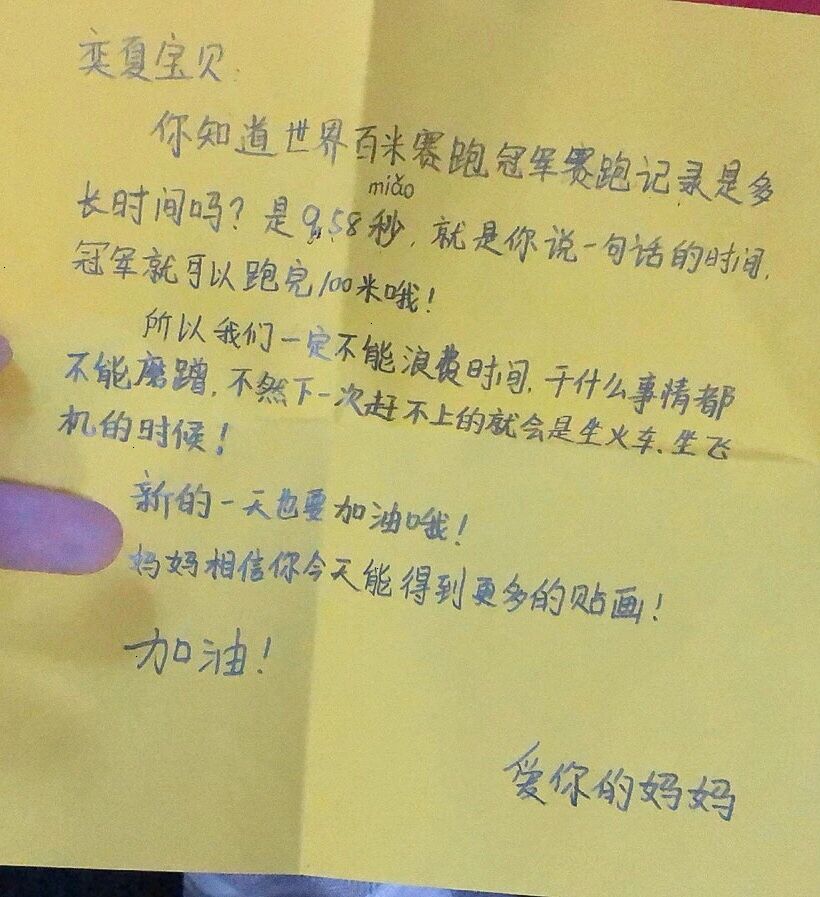 奕夏宝贝:
你知道世界百米赛跑冠军赛跑记录是多
miǎo
长时间吗?是9.58秒,就是你说一句话的时间,
冠军就可以跑完100米哦!
所以我们一定不能浪费时间,干什么事情都
不能磨蹭,不然下一次赶不上的就会是坐火车、坐飞
机的时候!
新的一天也要加油哦!
妈妈相信你今天能得到更多的贴画!
加油!
爱你的妈妈